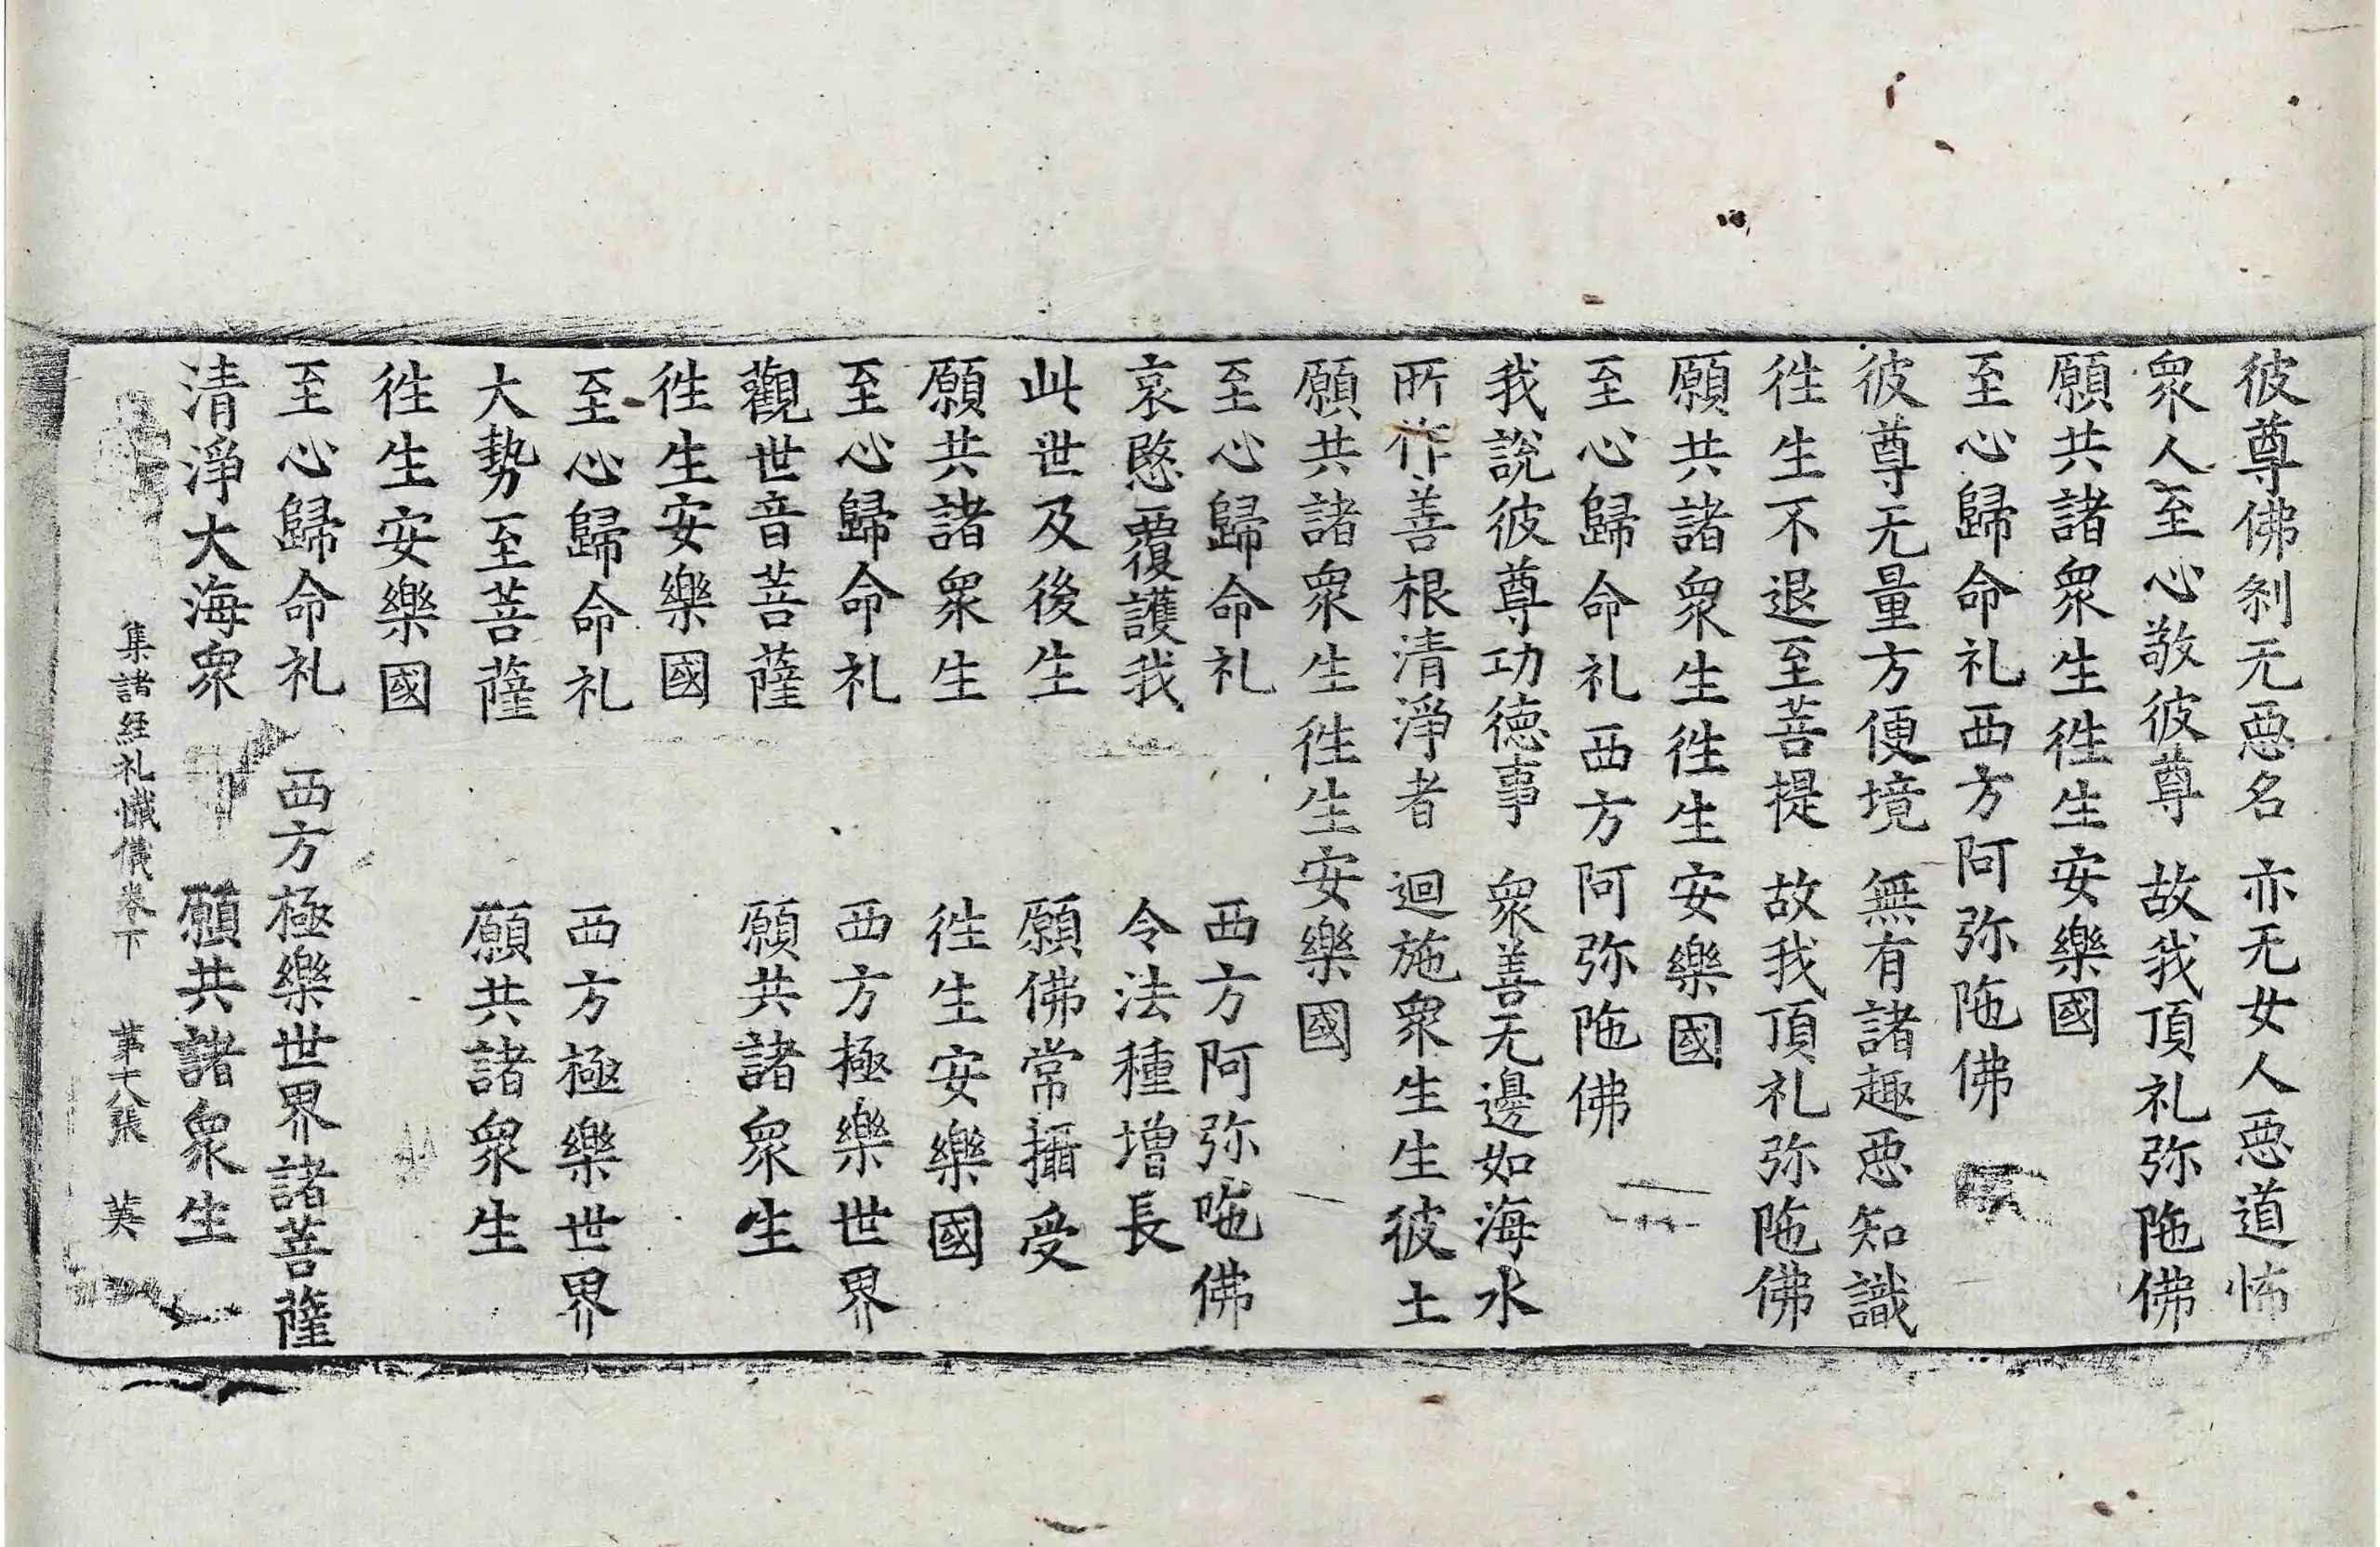 彼尊佛刹无惡名　亦无女人惡道怖
衆人至心敬彼尊　故我頂礼弥陁佛
願共諸衆生往生安樂國
至心歸命礼西方阿弥陁佛
彼尊无量方便境　無有諸趣惡知識
往生不退至菩提　故我頂礼弥陁佛
願共諸衆生往生安樂國
至心歸命礼西方阿弥陁佛
我說彼尊功德事　衆善无邊如海水
所作善根清淨者　迴施衆生生彼土
願共諸衆生往生安樂國
至心歸命礼　西方阿弥陁佛
哀愍覆護我　令法種增長
此世及後生　願佛常攝受
願共諸衆生　往生安樂國
至心歸命礼　西方極樂世界
觀世音菩薩　願共諸衆生
往生安樂國
至心歸命礼　西方極樂世界
大勢至菩薩　願共諸衆生
往生安樂國
至心歸命礼　西方極樂世界諸菩薩
清淨大海衆　願共諸衆生
集諸經礼懺儀卷下　第十八張　英